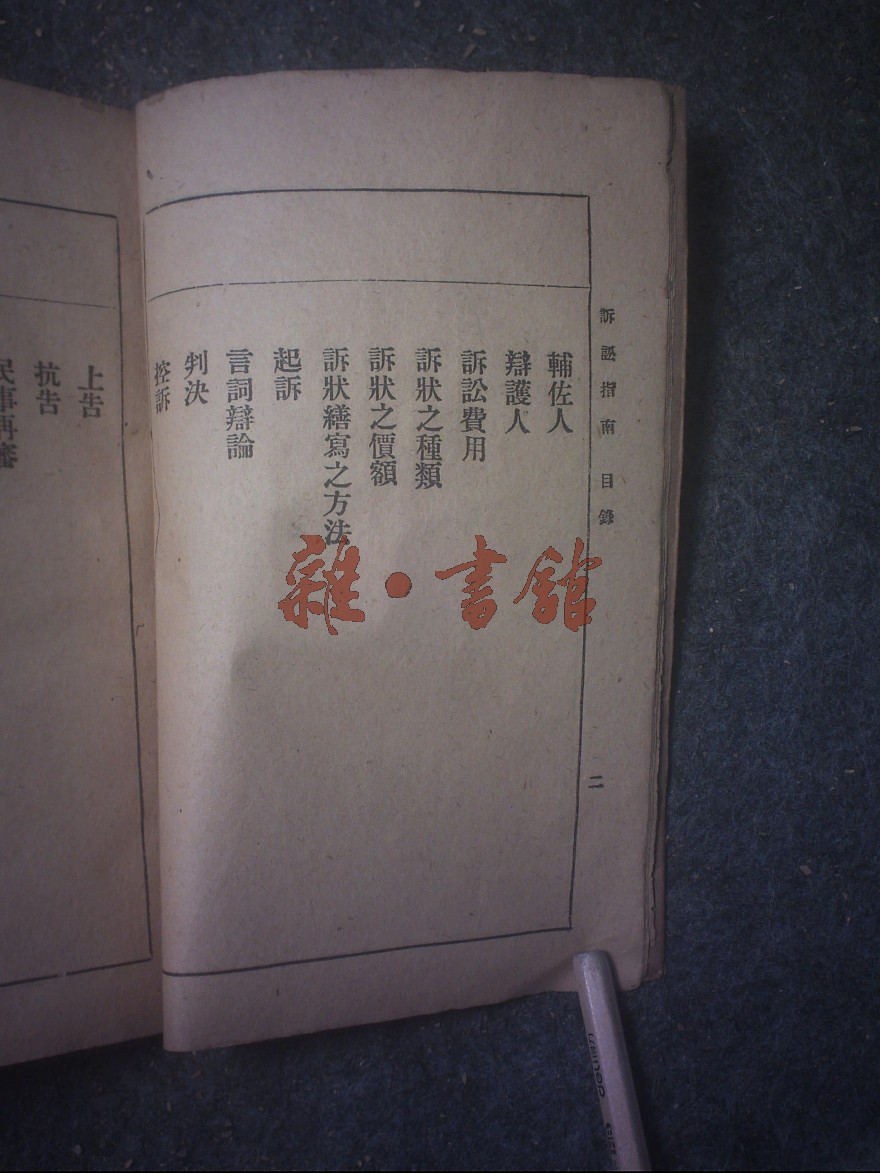 訴訟指南 目錄
二
輔佐人
辯護人
訴訟費用
訴狀之種類
訴狀之價額
訴狀繕寫之方法
起訴
言詞辯論
判決
控訴
上告
抗告
民事再審
雜·書館